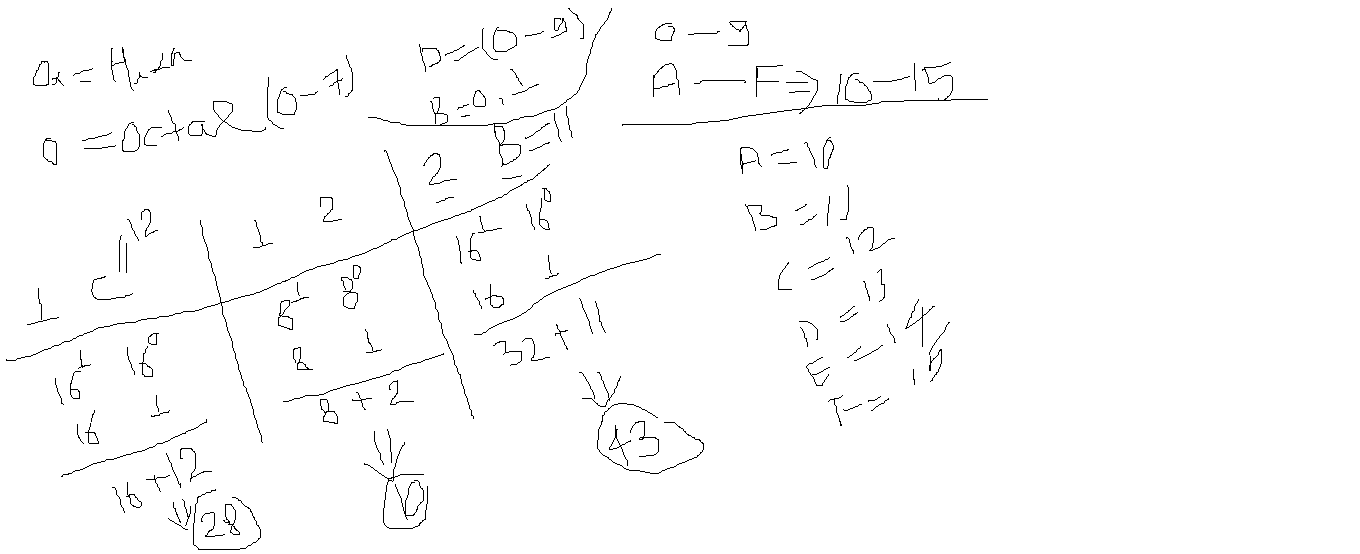 0x = Hexa
0 = Octal (0-7)
D = (0-9)
B = 0, 1
0 - 9
A - F => 10 - 15
A = 10
B = 11
C = 12
D = 13
E = 14
F = 15
1 C 12
16^1 16^0
16 1
16 + 12
28
1 2
8^1 8^0
8 1
8 + 2
10
2 B = 11
16^1 16^0
16 1
32 + 11
43